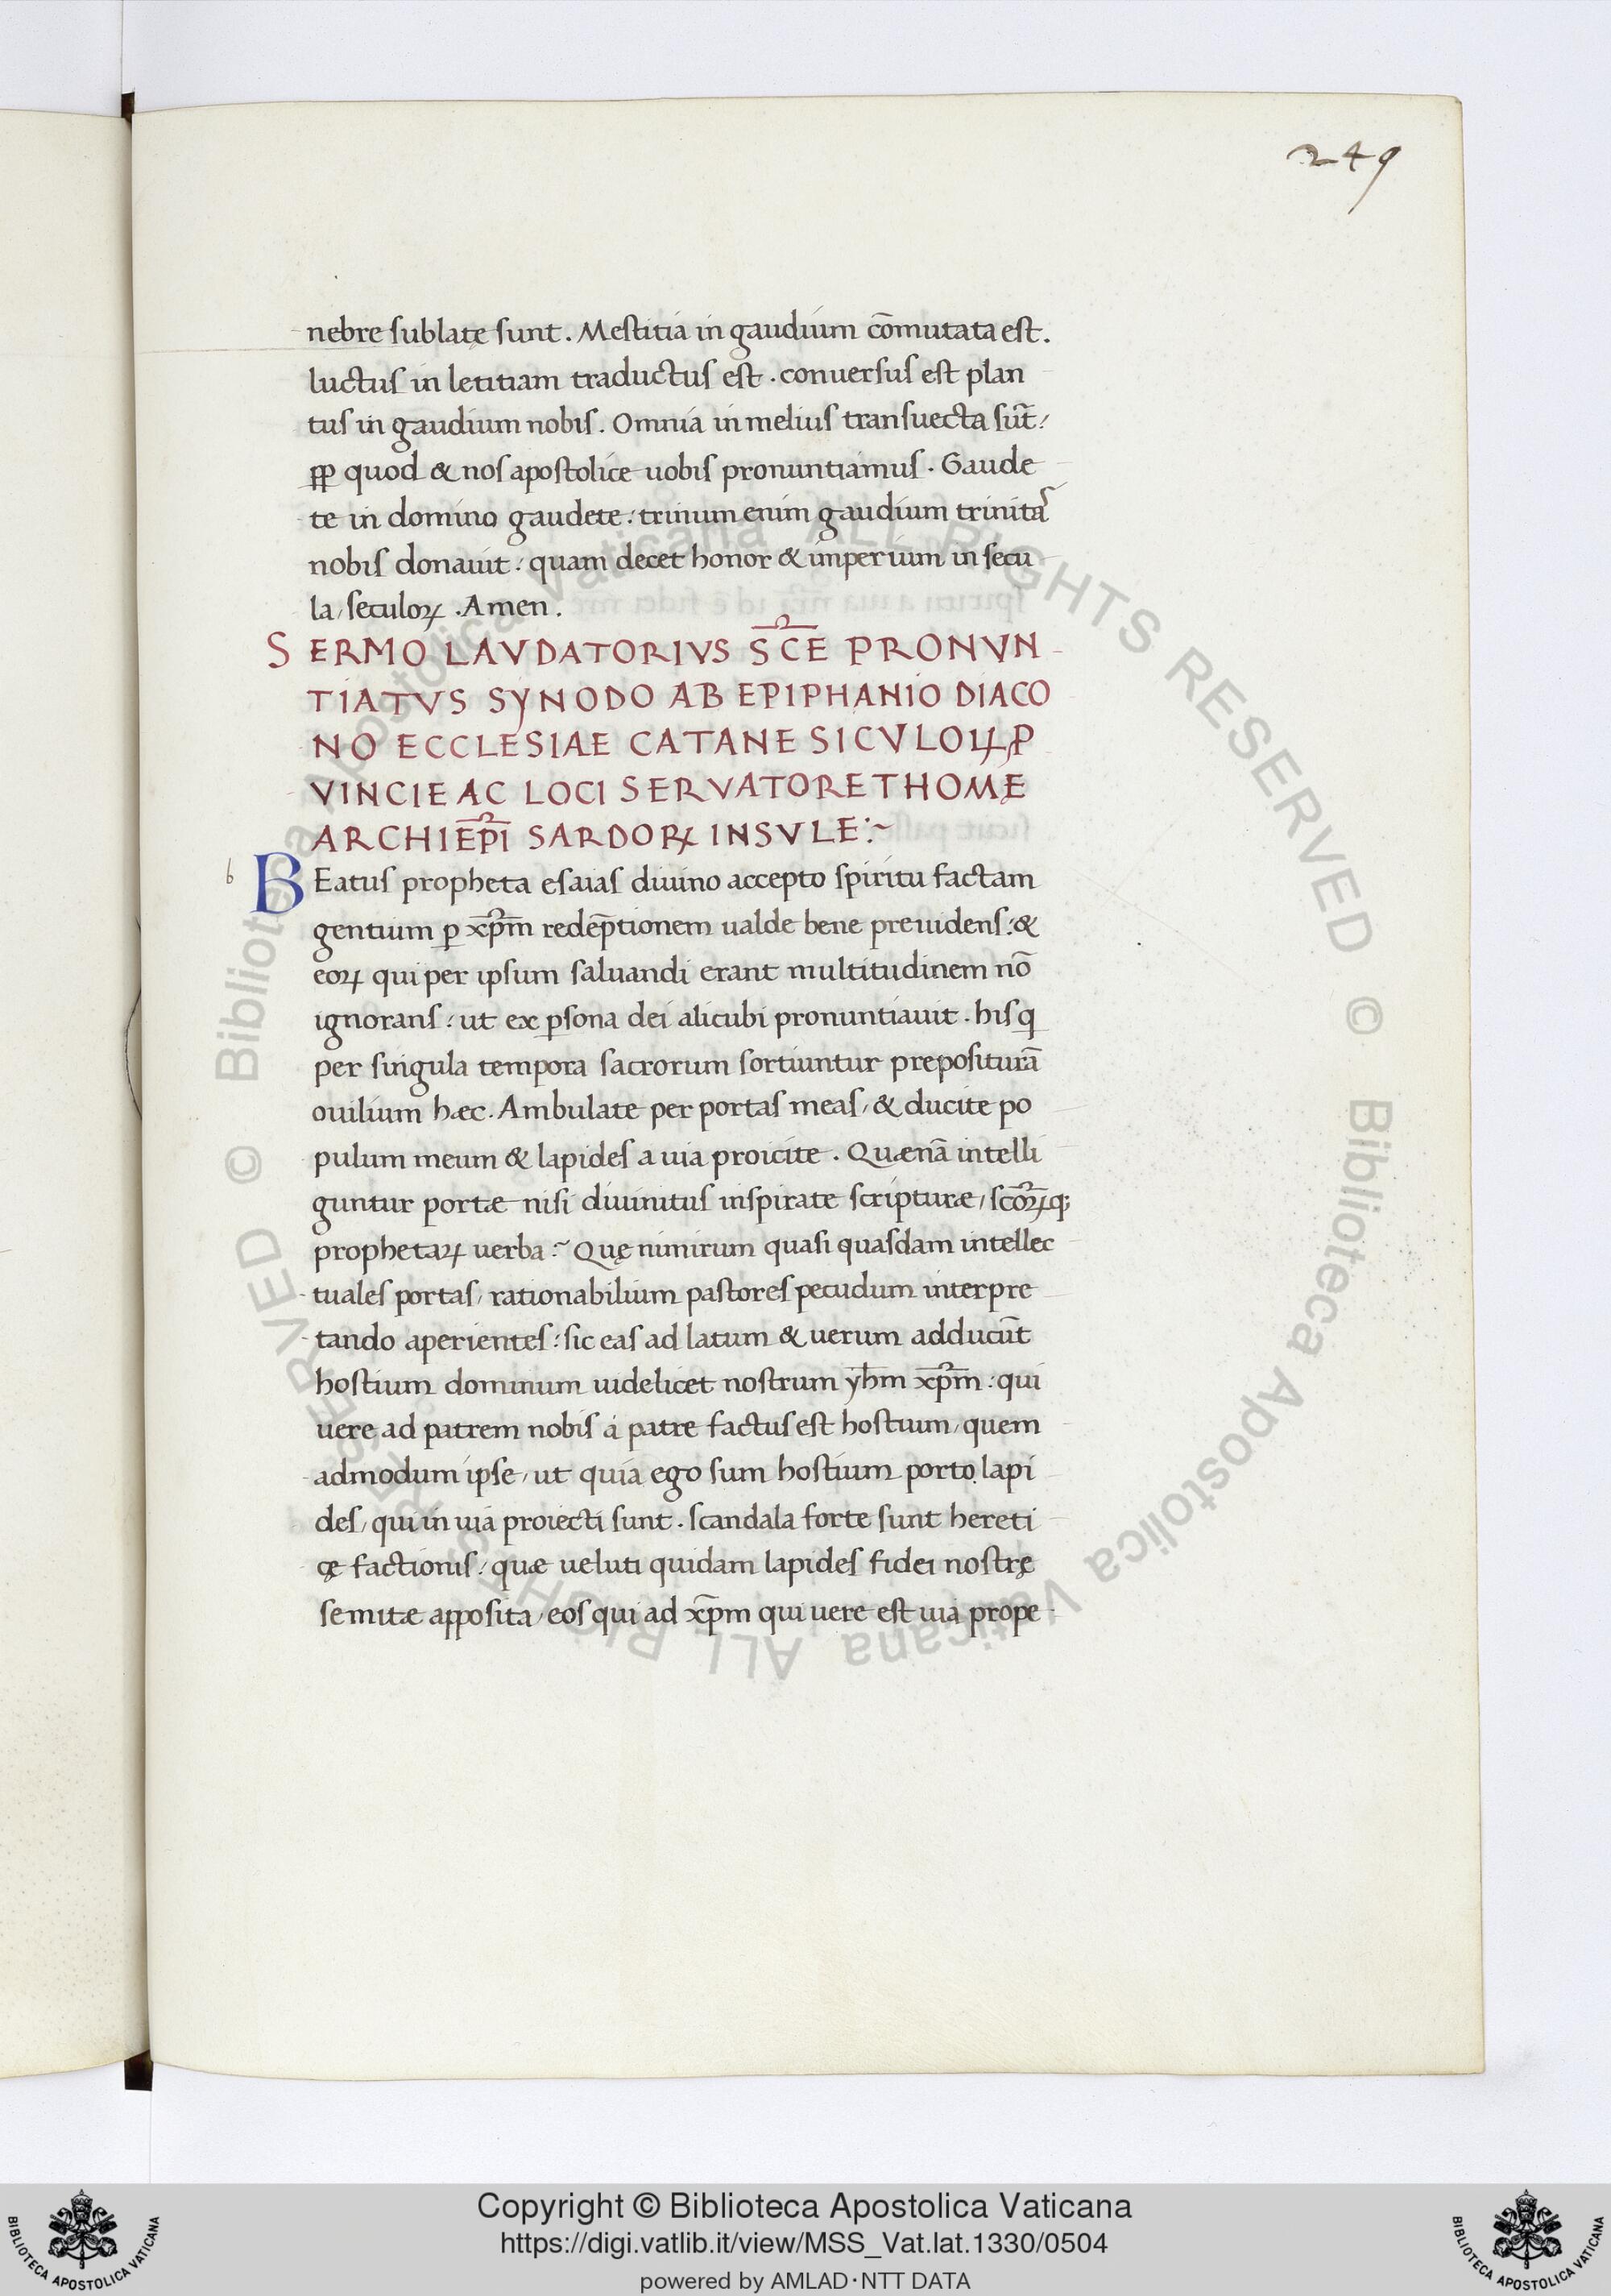 249
nebre sublatę sunt. Mestitia in gaudium cōmutata est.
luctus in letitiam traductus est. conuersus est plan
tus in gaudium nobis. Omnia in melius transuecta sūt:
ꝓp quod & nos apostolice uobis pronuntiamus. Gaude
te in domino gaudete: trinum enim gaudium trinitas
nobis donauit: quam decet honor & imperium in secu
la, seculoꝝ. Amen.
SERMO LAVDATORIVS SC̄E PRONVN
TIATVS SYNODO AB EPIPHANIO DIACO
NO ECCLESIAE CATANE SICVLOꝜ Ꝓ
VINCIE AC LOCI SERVATORE THOMĘ
ARCHIEP̄I SARDOꝜ INSVLE:~
b
BEatus propheta esaias diuino accepto spiritu factam
gentium ꝑ xp̄m redēptionem ualde bene preuidens: &
eoꝝ qui per ipsum saluandi erant multitudinem nō
ignorans: ut ex ꝑsona dei alicubi pronuntiauit. his q
per singula tempora sacrorum sortiuntur prepositurā
ouilium hæc. Ambulate per portas meas, & ducite po
pulum meum & lapides a uia proicite. Quænā intelli
guntur portæ nisi diuinitus inspirate scripturæ, sc̄oꝝq;
prophetaꝝ uerba:~ Quę nimirum quasi quasdam intellec
tuales portas, rationabilium pastores pecudum interpre
tando aperientes: sic eas ad latum & uerum adducūt
hostium dominum uidelicet nostrum yh̄m xp̄m: qui
uere ad patrem nobis a patre factus est hostium, quem
admodum ipse, ut quia ego sum hostium porto lapi
des, qui in uia proiecti sunt. scandala forte sunt hereti
cę factionis: quæ ueluti quidam lapides fidei nostrę
semitæ apposita, eos qui ad xp̄m qui uere est uia prope
© Biblioteca Apostolica Vaticana ALL RIGHTS RESERVED © Biblioteca Apostolica Vaticana ALL RIGHTS RESERVED
Copyright © Biblioteca Apostolica Vaticana
https://digi.vatlib.it/view/MSS_Vat.lat.1330/0504
powered by AMLAD·NTT DATA
BIBLIOTECA APOSTOLICA VATICANA
BIBLIOTECA APOSTOLICA VATICANA